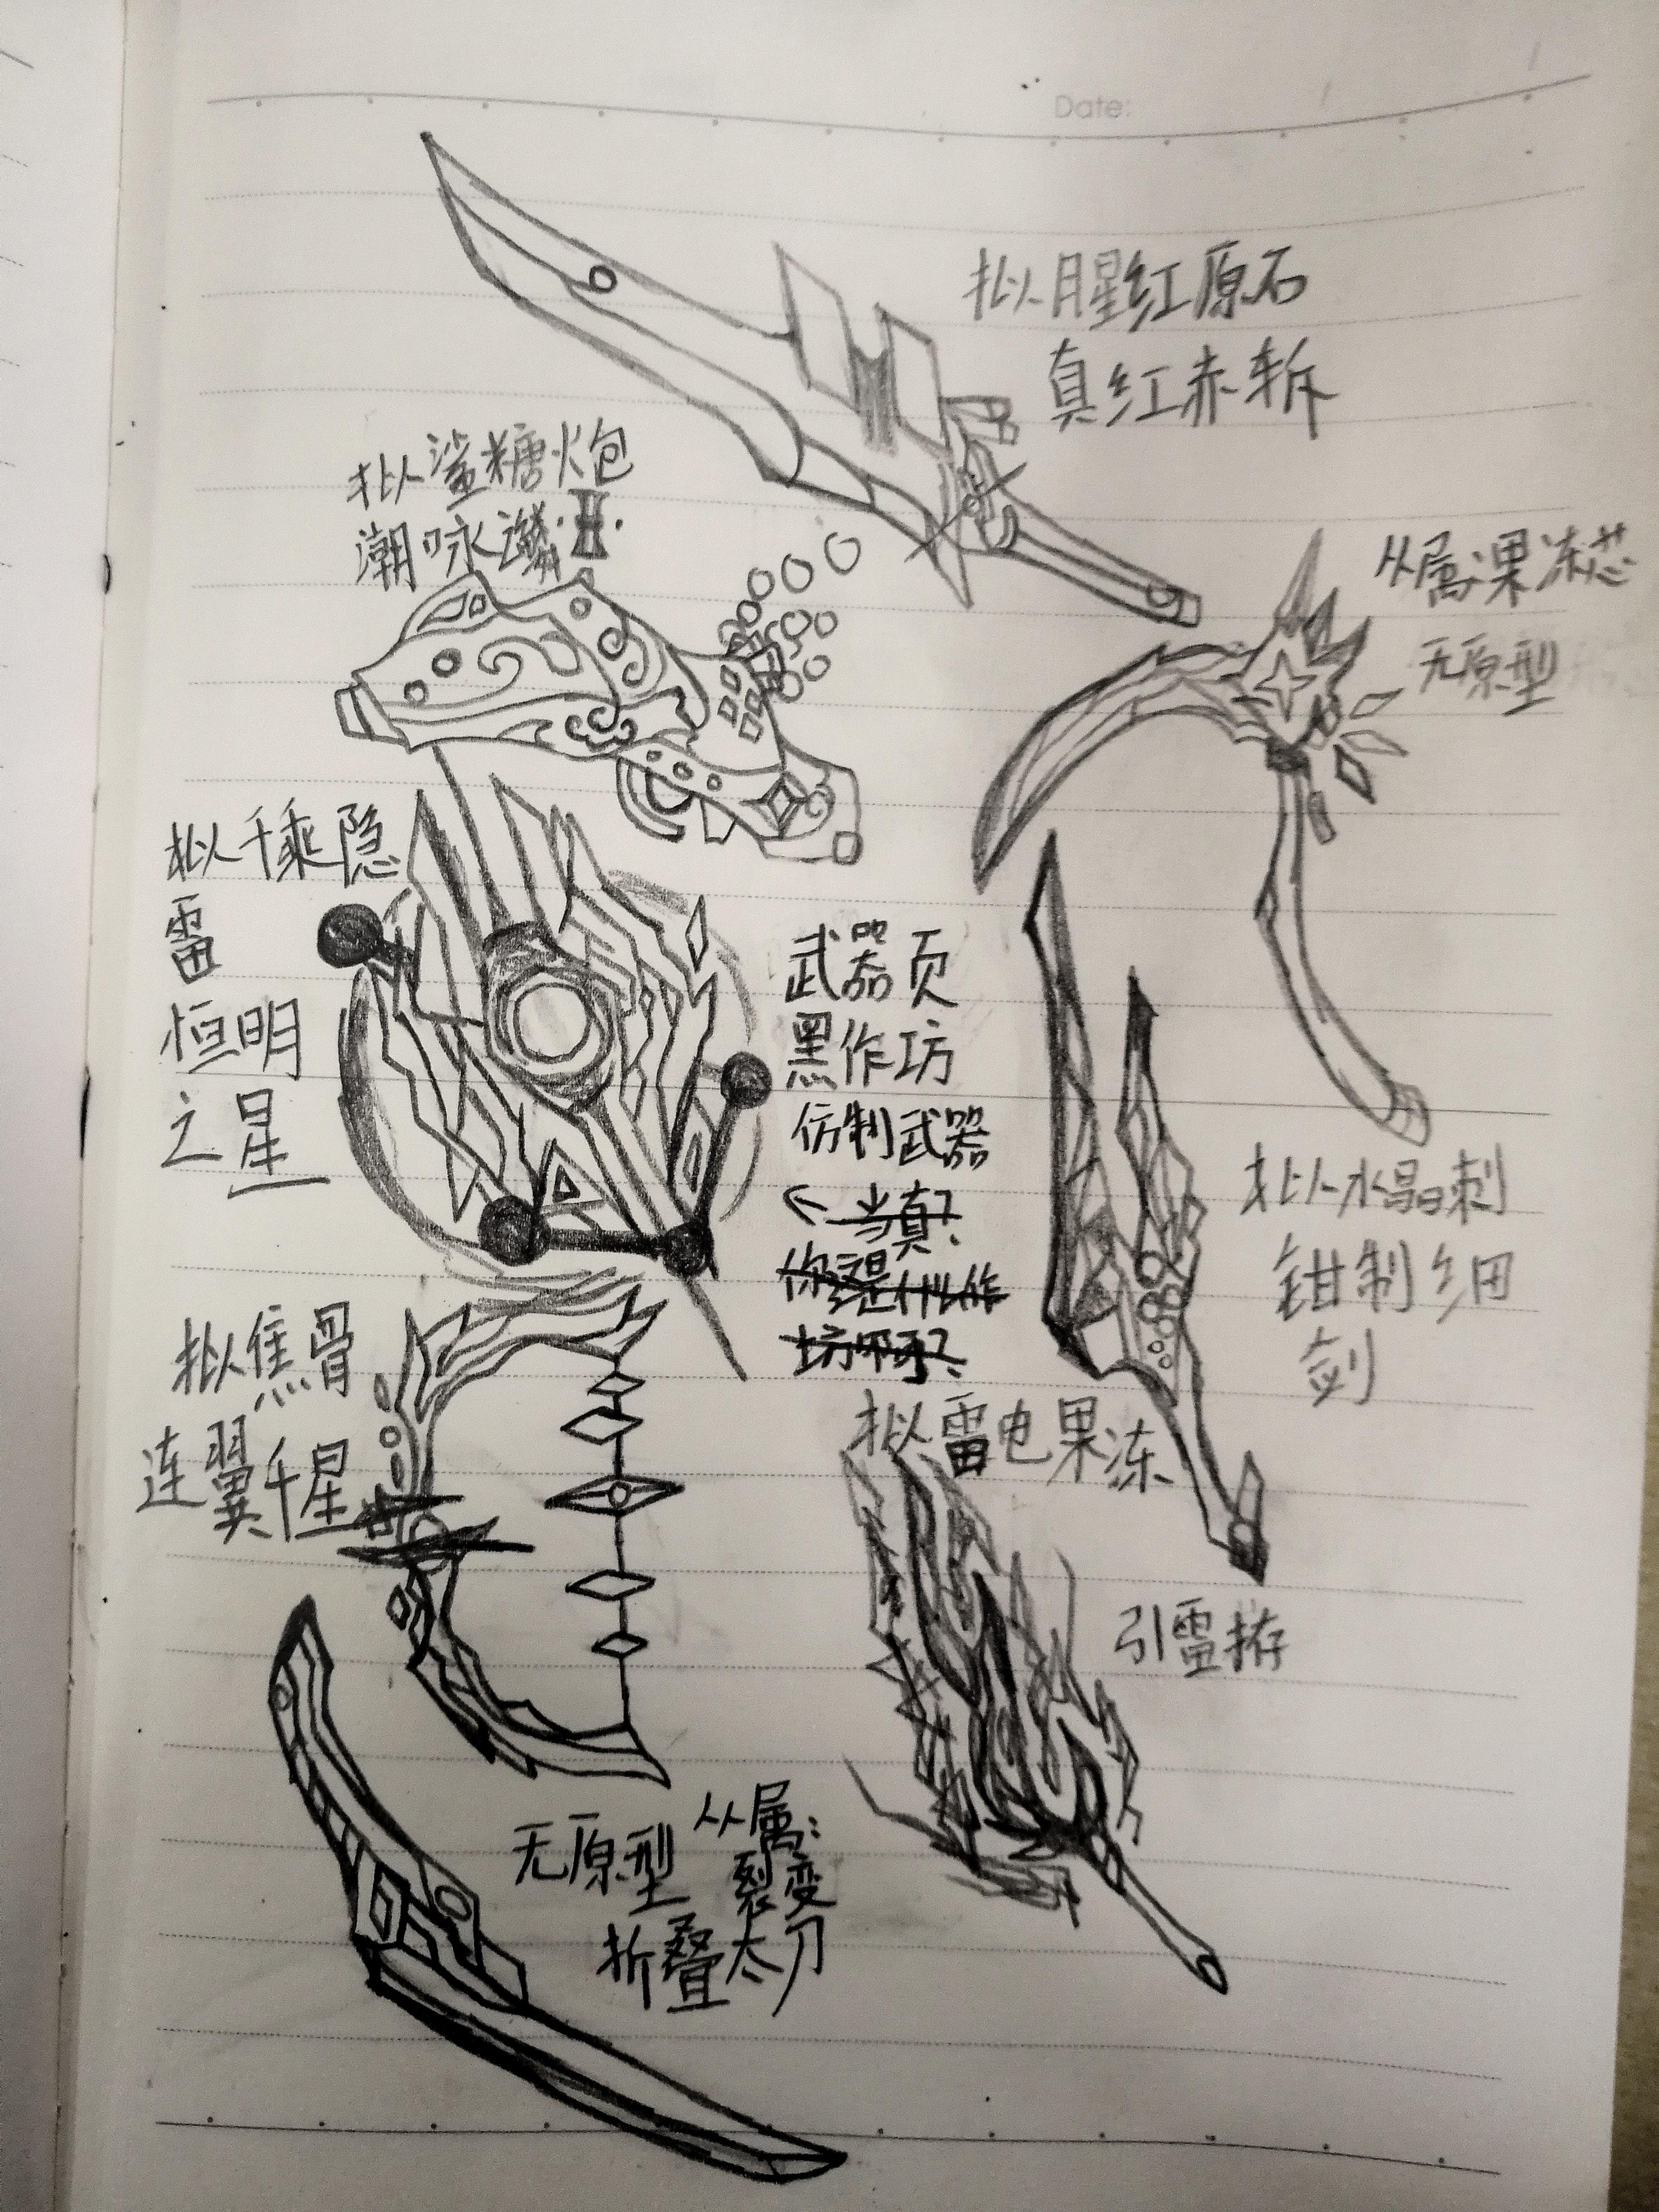 Date:
拟月星红原石
真红赤斩
拟鲨糖火包
潮咏潾·II·
从属:果冻芯
无原型
拟千乘隐
雷
恒明
之星
武器页
黑作坊
仿制武器
←当真?
你这是什么作
坊啊?
拟水晶刺
钳制细
剑
拟焦骨
连翼千星
拟雷电果冻
引雷
无原型
从属:
裂变
折叠太刀